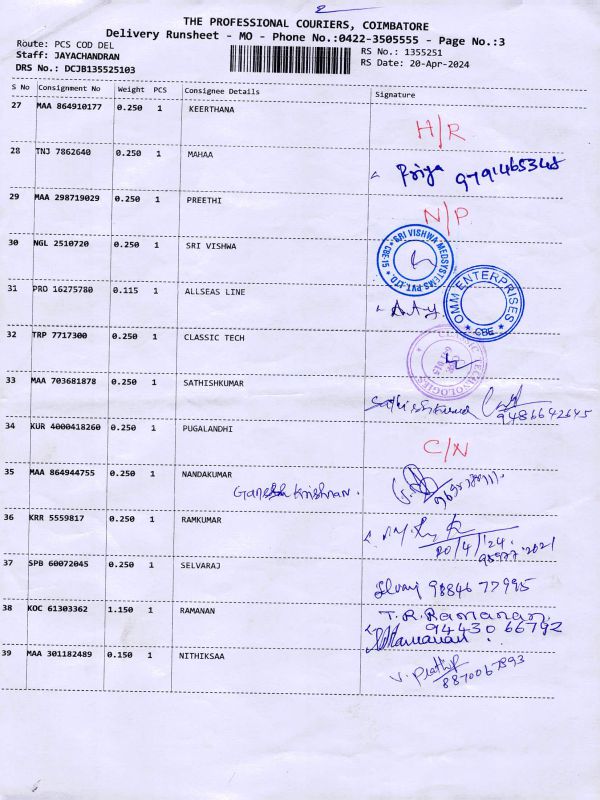 THE PROFESSIONAL COURIERS, COIMBATORE
Delivery Runsheet - MO - Phone No.:0422-3505555 - Page No.:3
Route: PCS COD DEL
RS No.: 1355251
Staff: JAYACHANDRAN
RS Date: 20-Apr-2024
DRS No.: DCJB135525103
S No Consignment No Weight PCS Consignee Details Signature
27 MAA 864910177 0.250 1 KEERTHANA H/R
28 TNJ 7862640 0.250 1 MAHAA Priya 9791465345
29 MAA 298719029 0.250 1 PREETHI N/P
30 NGL 2510720 0.250 1 SRI VISHWA
SRI VISHWA MEDSYSTEMS PVT. LTD. * CBE-15 *
31 PRO 16275780 0.115 1 ALLSEAS LINE
OMM ENTERPRISES * CBE *
32 TRP 7717300 0.250 1 CLASSIC TECH
TECHNOLOGIES
33 MAA 703681878 0.250 1 SATHISHKUMAR Sathishkumar 9486642645
34 KUR 4000418260 0.250 1 PUGALANDHI C/N
35 MAA 864944755 0.250 1 NANDAKUMAR
Ganesh Krishnan.
36 KRR 5559817 0.250 1 RAMKUMAR
20/4/'24
37 SPB 60072045 0.250 1 SELVARAJ 98846 77995
38 KOC 61303362 1.150 1 RAMANAN T.R.Ramanan.
94430 66792
39 MAA 301182489 0.150 1 NITHIKSAA
8870067893